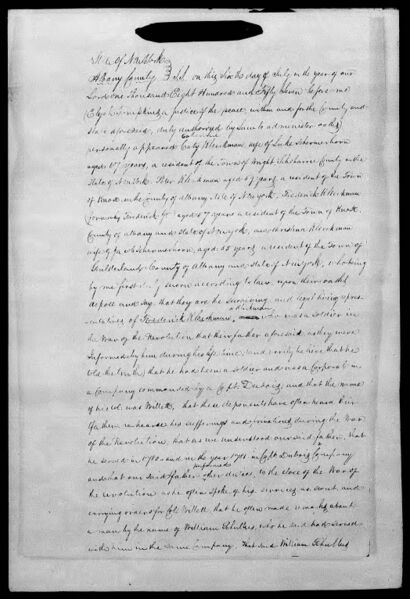 State of New York
Albany County } SS. on this Sixth day of July in the year of our
Lord one Thousand Eight Hundred and Fifty Seven before me
a Justice of the peace within and for the County and
State aforesaid, duly authorized by law to administer oaths
personally appeared Caty Kleekman wife of Luke Schermerhorn
aged 69 years, a resident of the Town of Wright Schoharie County in the
State of New York. Peter Kleekman aged 67 years a resident of the Town
of Knox in the County of Albany State of New York, Frederick Kleekman
formerly Frederick Jr aged 57 years a resident of the Town of Knox
County of Albany and State of New York, and Christina Kleekman
wife of Jacob Schermerhoorn, aged 55 years a resident of the Town of
Guilderland County of Albany and State of New York, who being
by me first duly sworn according to law, upon their oaths
depose and say, that they are the surviving and legal living repre-
sentatives of Frederick Kleekman, who was a Soldier in
the War of the Revolution that their father aforesaid as they were
informed by him during his life time, and verily believe that he
told the truth, that he had been a soldier and was a Corporal in
a Company commanded by a Capt. Dubois, and that the name
of his Col. was Willett, that these deponents have often heard their
father rehearse his sufferings and privations during the War
of the Revolution, that as we understood our said father, that
he served in 1780 and in the year 1781 in Capt Dubois Company
and that our said father informed to the close of the War of
the revolution as he often spoke of his services as scout and
carrying orders for Col. Willett, that he often made remarks about
a man by the name of William Schultes, who he said had served
with him in the same Company, that said William Schultes